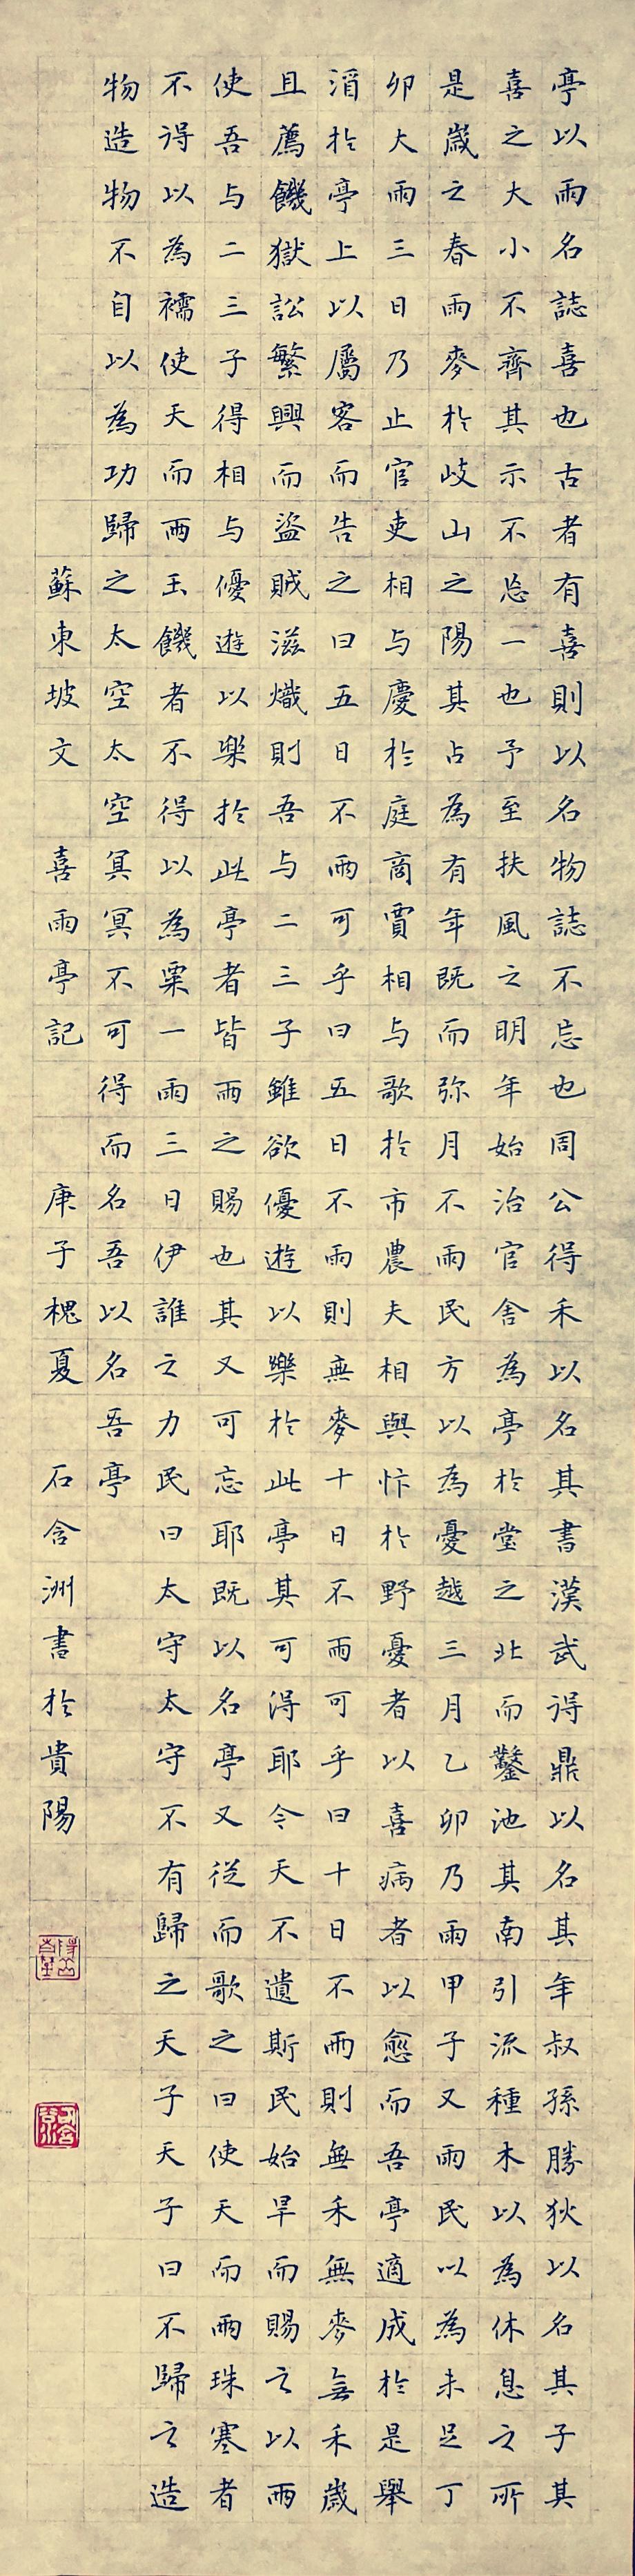 亭以雨名誌喜也古者有喜則以名物誌不忘也周公得禾以名其書漢武得鼎以名其年叔孫勝狄以名其子其
喜之大小不齊其示不忘一也予至扶風之明年始治官舍為亭於堂之北而鑿池其南引流種木以為休息之所
是歲之春雨麥於岐山之陽其占為有年既而弥月不雨民方以為憂越三月乙卯乃雨甲子又雨民以為未足丁
卯大雨三日乃止官吏相与慶於庭商賈相与歌於市農夫相與忭於野憂者以喜病者以愈而吾亭適成於是舉
酒於亭上以屬客而告之曰五日不雨可乎曰五日不雨則無麥十日不雨可乎曰十日不雨則無禾無麥無禾歲
且薦饑獄訟繁興而盜賊滋熾則吾与二三子雖欲優遊以樂於此亭其可得耶令天不遺斯民始旱而賜之以雨
使吾与二三子得相与優遊以樂於此亭者皆雨之賜也其又可忘耶既以名亭又從而歌之曰使天而雨珠寒者
不得以為襦使天而雨玉饑者不得以為粟一雨三日伊誰之力民曰太守太守不有歸之天子天子曰不歸之造
物造物不自以為功歸之太空太空冥冥不可得而名吾以名吾亭
蘇東坡文 喜雨亭記 庚子槐夏 石含洲書於貴陽